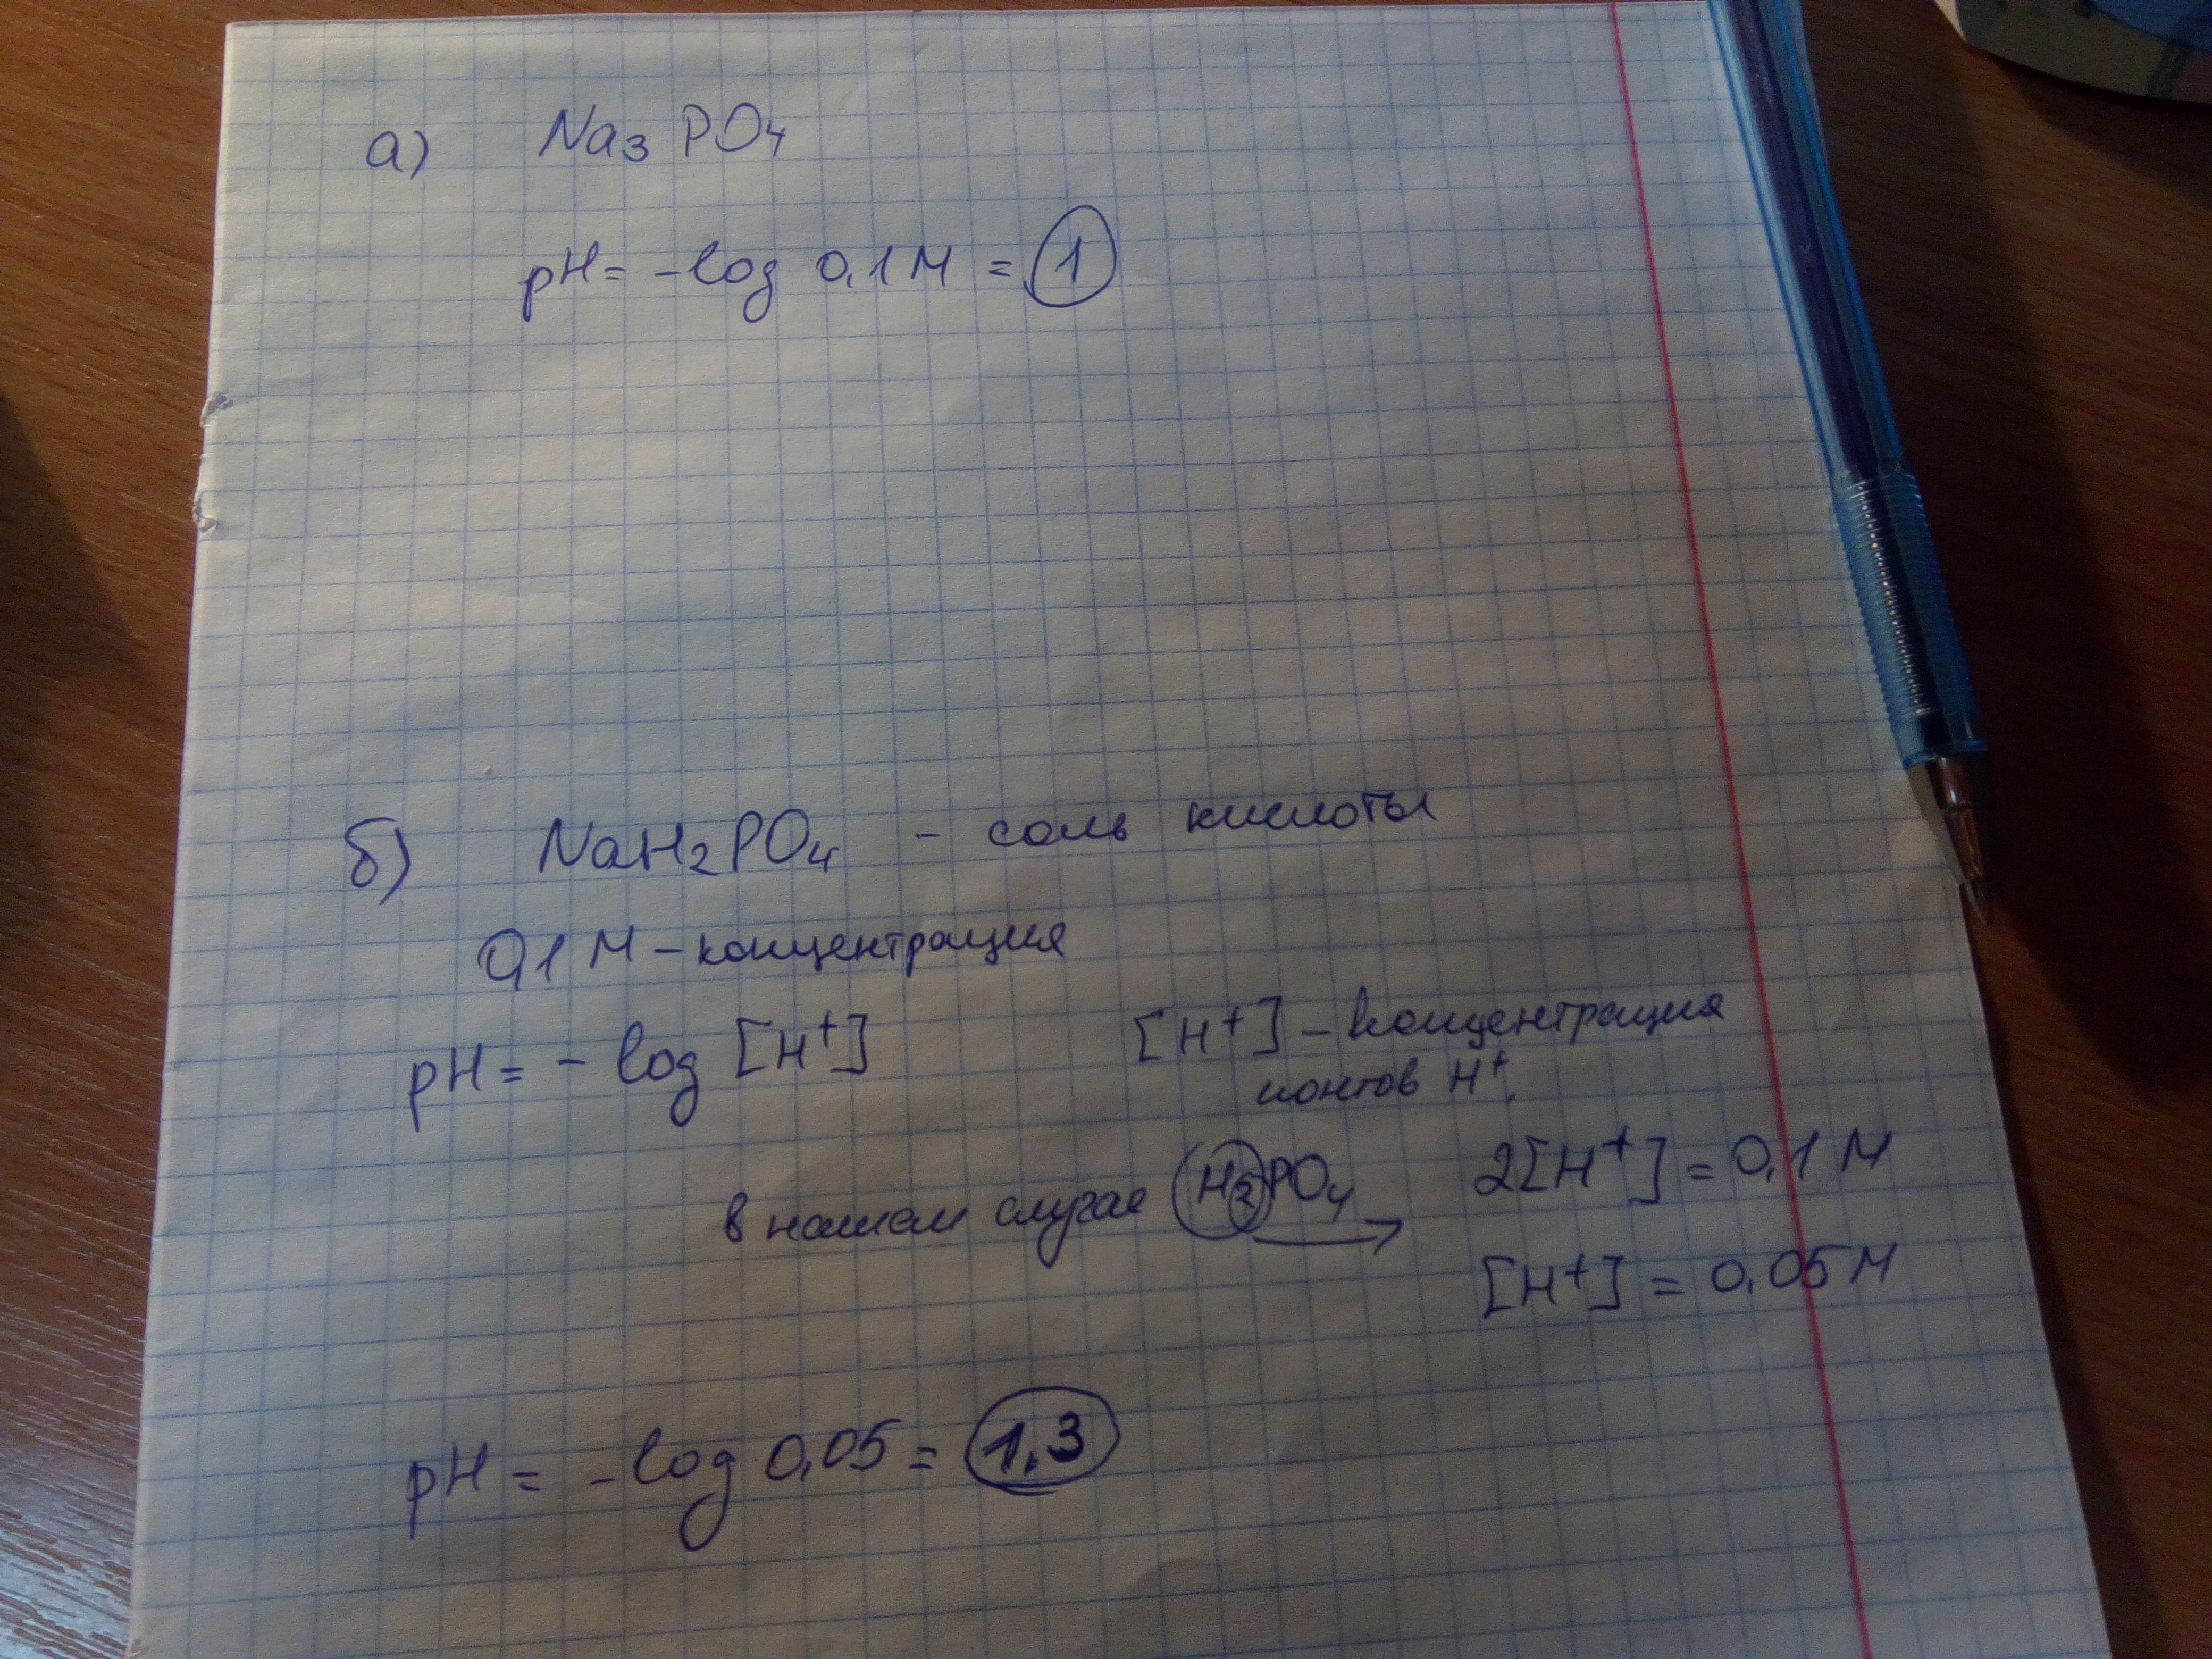 а) Na₃PO₄
pH = -log 0,1 M = 1
б) NaH₂PO₄ - соль кислоты
0,1 M - концентрация
pH = - log [H⁺]
[H⁺] - концентрация
ионов H⁺.
в нашем случае H₂PO₄ → 2[H⁺] = 0,1 M
[H⁺] = 0.05 M
pH = -log 0,05 = 1,3